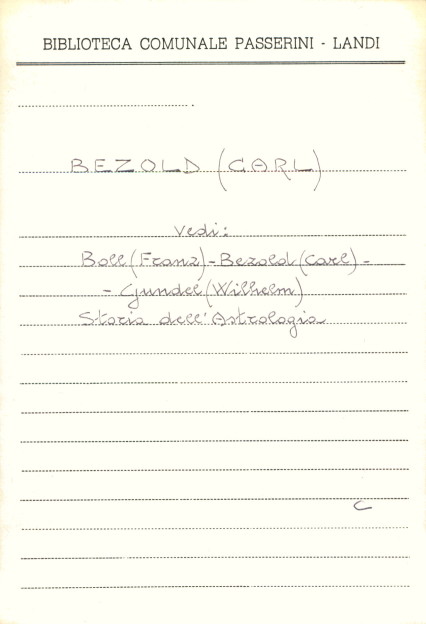 BIBLIOTECA COMUNALE PASSERINI - LANDI
BEZOLD (CARL)
Vedi:
Boll (Franz) - Bezold (Carl) -
- Gundel (Wilhelm)
Storia dell'Astrologia
C